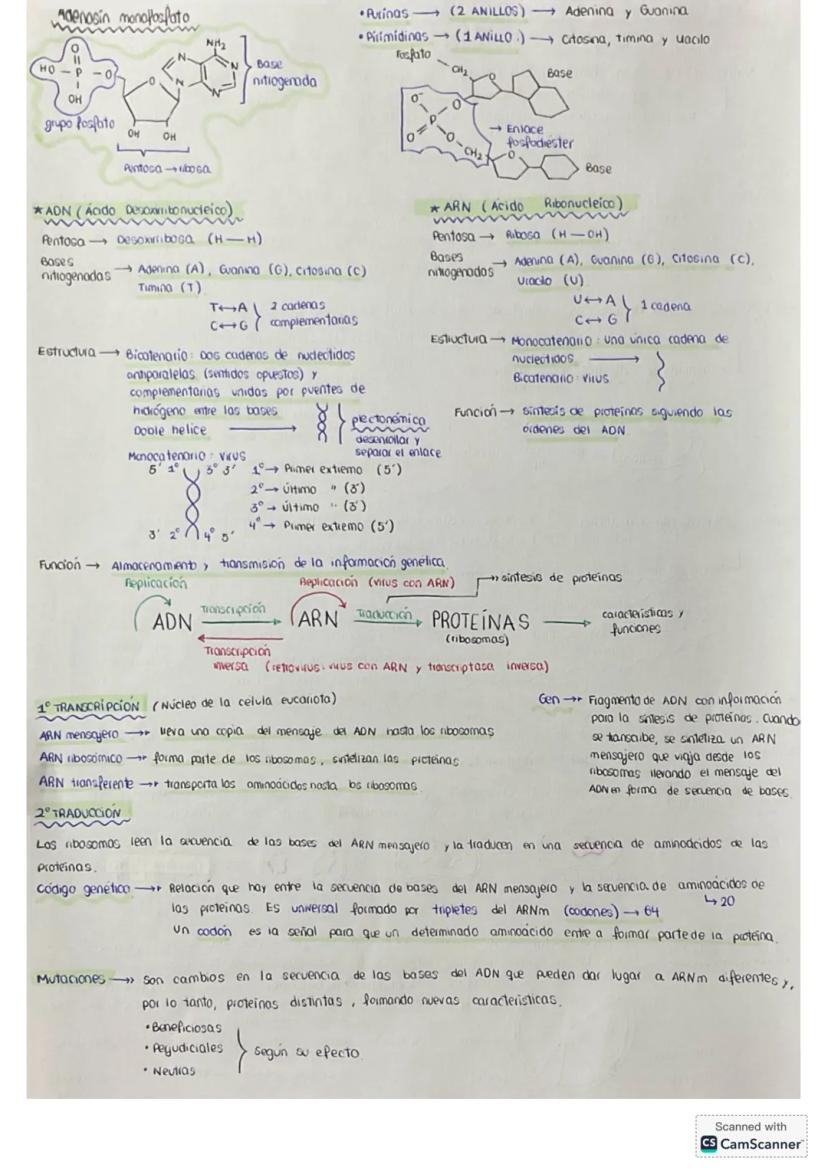 Adenosín monofosfato
NH₂
HO - P - O
O
OH
O
N
N
N
N
Base
nitrogenada
grupo fosfato
OH OH
Pentosa → ribosa
• Purinas → (2 ANILLOS) → Adenina y Guanina
• Pirimidinas → (1 ANILLO.) → Citosina, timina y uracilo
Fosfato
CH₂
O
Base
O⁻
O
P
O
O
→ Enlace
fosfodiéster
CH₂
O
Base
* ADN (Ácido Desoxirribonucleico)
Pentosa → Desoxirribosa (H — H)
Bases
nitrogenadas → Adenina (A), Guanina (G), Citosina (C)
Timina (T)
T↔A
C↔G
2 cadenas
complementarias
Estructura → Bicatenario: Dos cadenas de nucleótidos
antiparalelas (sentidos opuestos) y
complementarias unidas por puentes de
hidrógeno entre las bases
Doble hélice →
plectonémica
desenrollar y
separar el enlace
Monocatenario: virus
5' 1º 3º 3'
3' 2º 4º 5'
1º → Primer extremo (5')
2º → Último " (3')
3º → Último " (3')
4º → Primer extremo (5')
* ARN (Ácido Ribonucleico)
Pentosa → Ribosa (H — OH)
Bases
nitrogenadas → Adenina (A), Guanina (G), Citosina (C),
Uracilo (U)
U↔A
C↔G
1 cadena
Estructura → Monocatenario: una única cadena de
nucleótidos →
Bicatenario: virus
Función → síntesis de proteínas siguiendo las
órdenes del ADN
Función → Almacenamiento y transmisión de la información genética.
Replicación
Replicación (virus con ARN)
→ síntesis de proteínas
ADN Transcripción → ARN Traducción → PROTEÍNAS → características y
funciones
(ribosomas)
Transcripción
inversa (retrovirus: virus con ARN y transcriptasa inversa)
1º TRANSCRIPCIÓN (Núcleo de la célula eucariota)
ARN mensajero → lleva una copia del mensaje del ADN hasta los ribosomas
ARN ribosómico → forma parte de los ribosomas, sintetizan las proteínas
ARN transferente → transporta los aminoácidos hasta los ribosomas.
Gen → Fragmento de ADN con información
para la síntesis de proteínas. Cuando
se transcribe, se sintetiza un ARN
mensajero que viaja desde los
ribosomas llevando el mensaje del
ADN en forma de secuencia de bases.
2º TRADUCCIÓN
Los ribosomas leen la secuencia de las bases del ARN mensajero y la traducen en una secuencia de aminoácidos de las
proteínas.
Código genético → Relación que hay entre la secuencia de bases del ARN mensajero y la secuencia de aminoácidos de
↳ 20
las proteínas. Es universal formado por tripletes del ARNm (codones) → 64
Un codón es la señal para que un determinado aminoácido entre a formar parte de la proteína.
Mutaciones → Son cambios en la secuencia de las bases del ADN que pueden dar lugar a ARNm diferentes y,
por lo tanto, proteínas distintas, formando nuevas características.
• Beneficiosas
• Perjudiciales
• Neutras
según su efecto
Scanned with
CS CamScanner